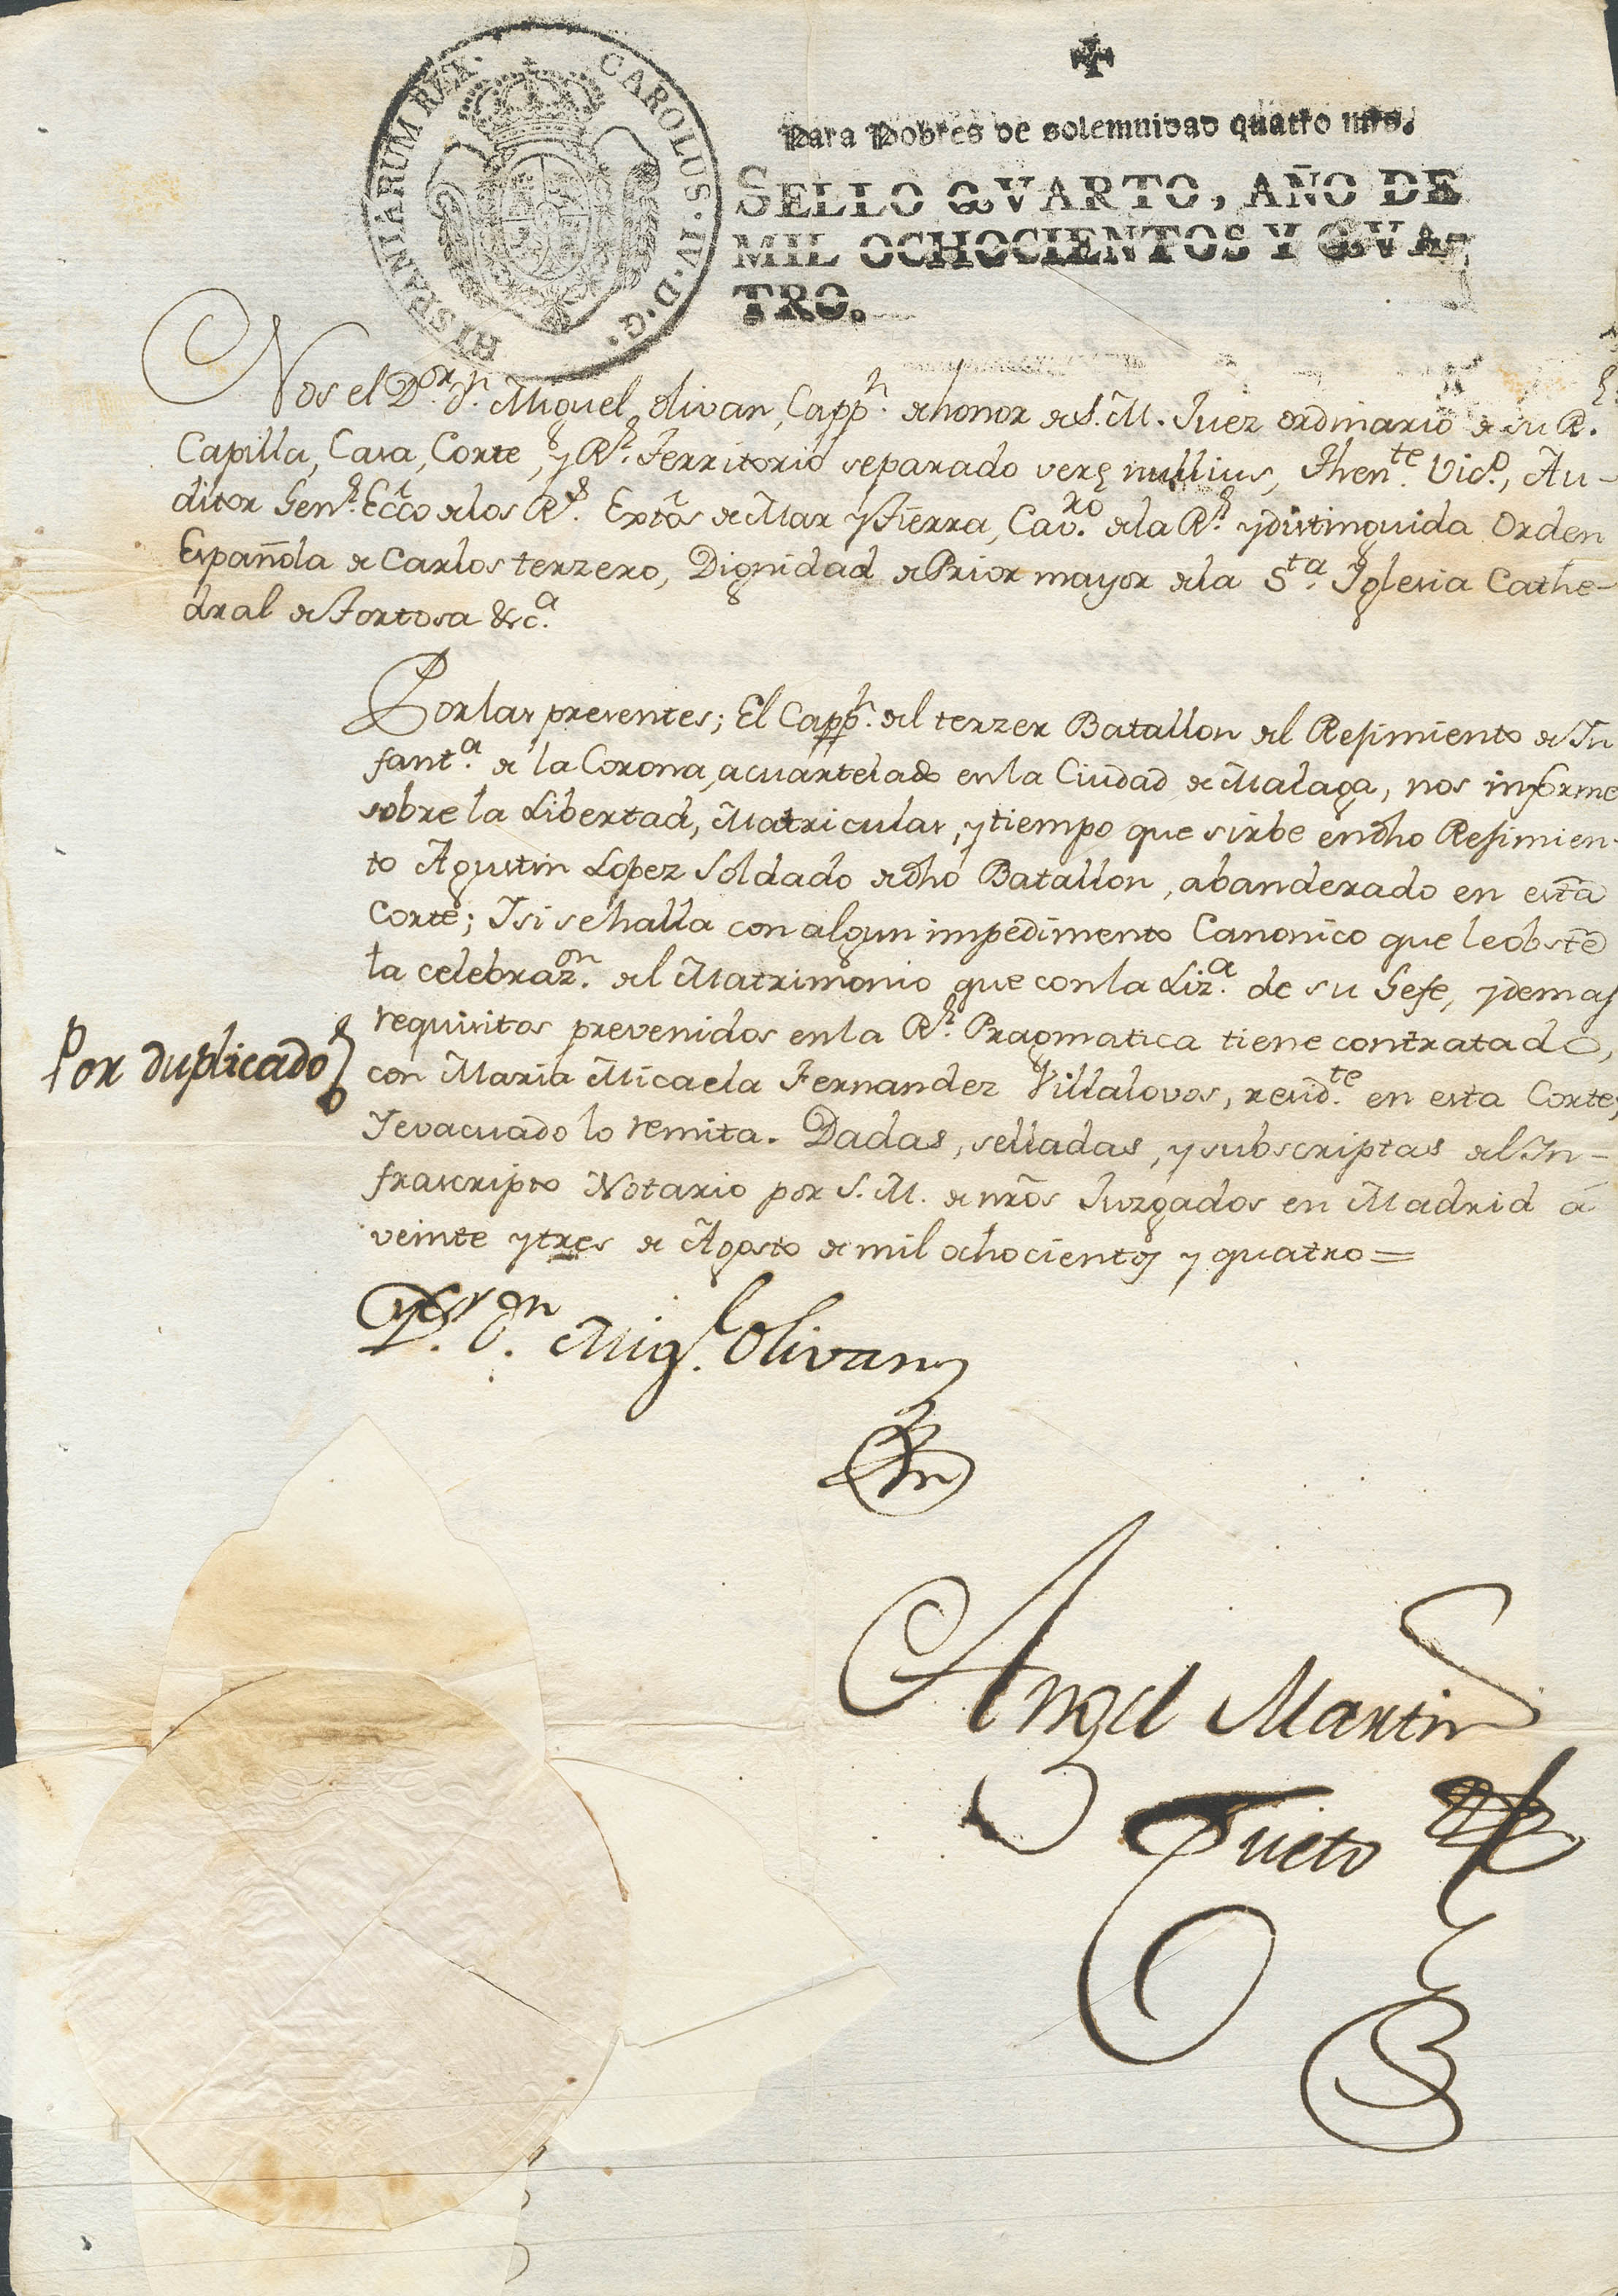 CAROLUS · IV · D · G · HISPANIARUM REX ·
Para Pobres de solemnidad quatro mrs.
SELLO QVARTO, AÑO DE
MIL OCHOCIENTOS Y QVA-
TRO.
Nos el Dor. Dn. Miguel Olivan, Cappn. de honor de S. M. Juez ordinario de su Rl.
Capilla, Casa, Corte, y Rl. Territorio separado vere nullius, Thente. Vico., Au-
ditor Genl. Ecco de los Rs. Extos de Mar y Tierra, Cavro. de la Rl. y distinguida Orden
Española de Carlos terzero, Dignidad de Prior mayor de la Sta. Yglesia Cathe-
dral de Tortosa &ca.
Por las presentes; El Cappn. del terzer Batallon del Regimiento de In
fanta. de la Corona, acuartelado en la Ciudad de Malaga, nos informe
sobre la Libertad, Matricular, y tiempo que sirbe en dho Regimien-
to Agustin Lopez Soldado de dho Batallon, abanderado en esta
Corte; Y si se halla con algun impedimento Canonico que le obste
la celebrazon. del Matrimonio que con la Liza. de su Gefe, y demas
requisitos prevenidos en la Rl. Pragmatica tiene contratado,
Por duplicado
con Maria Micaela Fernandez Villalovos, residte. en esta Corte;
Y evacuado lo remita. Dadas, selladas, y subscriptas del In-
frascripto Notario por S. M. de nros Juzgados en Madrid á
veinte y tres de Agosto de mil ochocientos y quatro =
Dor. Dn. Migl. Olivan
Angel Martin
Tieto